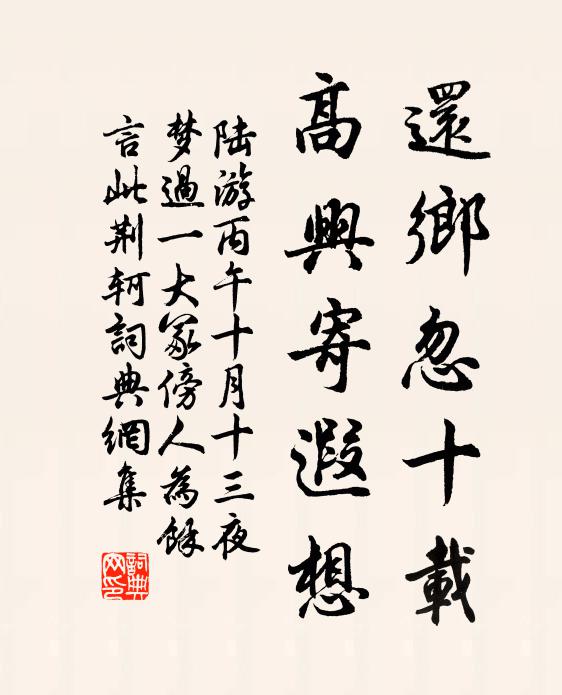 還鄉忽十載
高興寄遐想
陆游丙午十月十三夜
梦過一大冢傍人為餘
言此荆軻詞典網集
詞典
网印